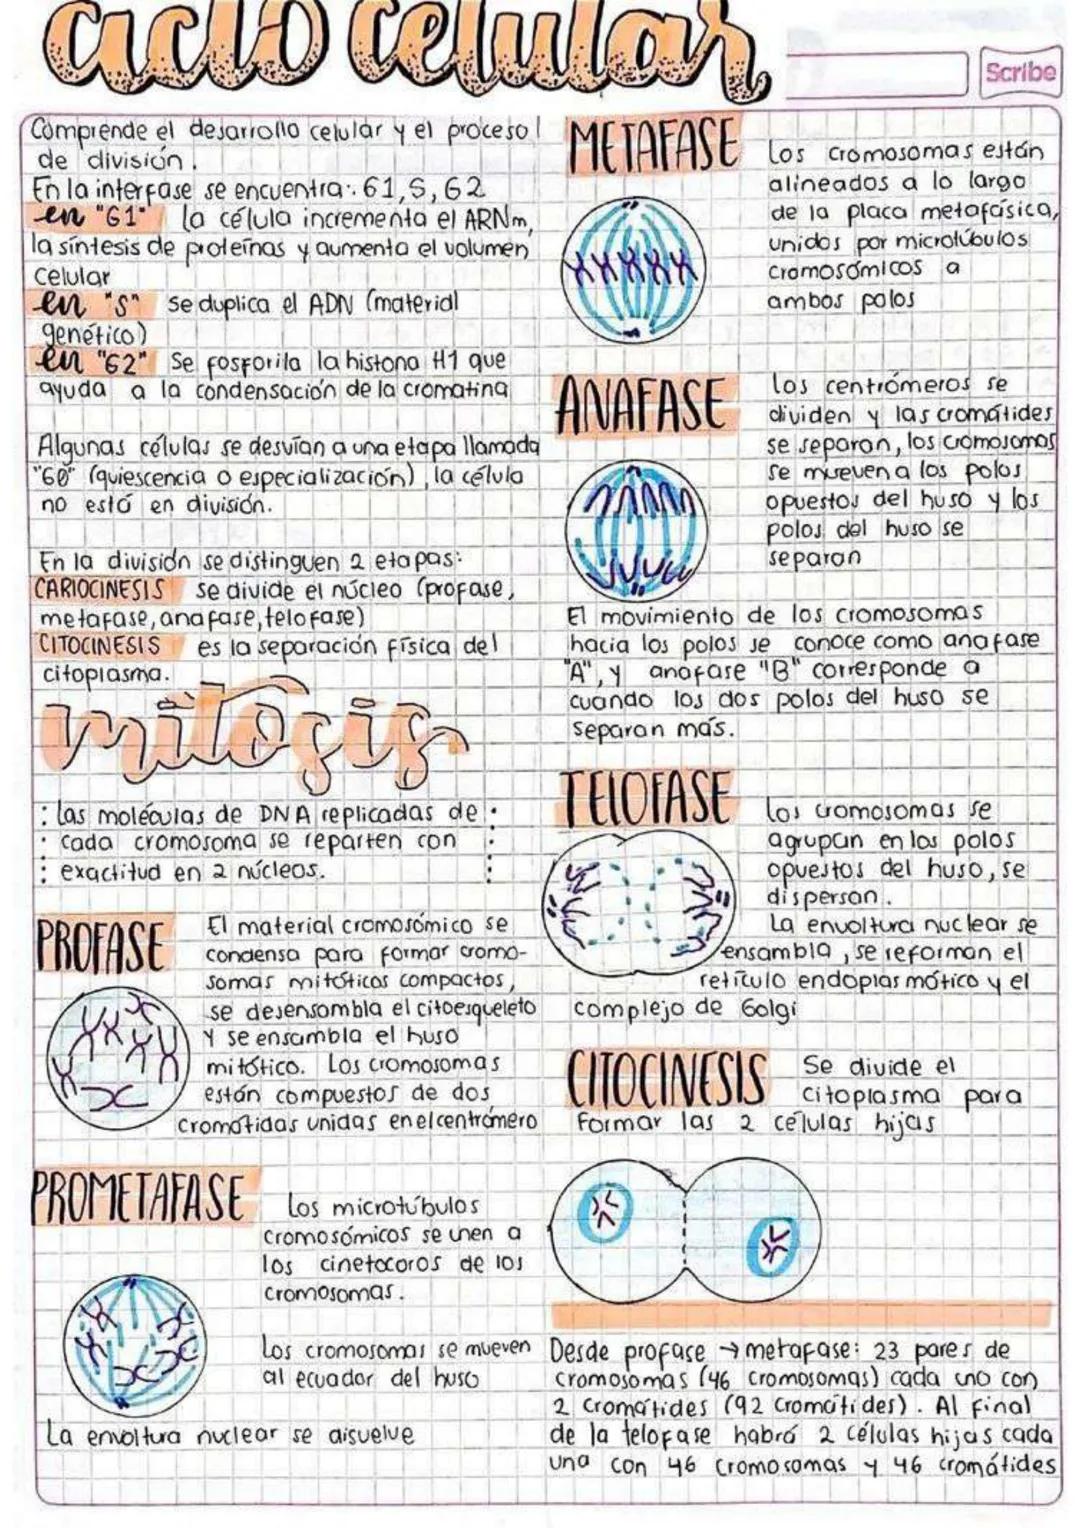 ciclo celular
Scribe
Comprende el desarrollo celular y el proceso
de división.
En la interfase se encuentra: G1, S, G2
en "G1" la célula incrementa el ARNm,
la síntesis de proteínas y aumenta el volumen
celular
en "S" se duplica el ADN (material
genético)
en "G2" Se fosforila la histona H1 que
ayuda a la condensación de la cromatina
Algunas células se desvían a una etapa llamada
"G0" (quiescencia o especialización), la célula
no está en división.
En la división se distinguen 2 etapas:
CARIOCINESIS se divide el núcleo (profase,
metafase, anafase, telofase)
CITOCINESIS es la separación física del
citoplasma.
mitosis
: las moléculas de DNA replicadas de :
: cada cromosoma se reparten con :
: exactitud en 2 núcleos. :
PROFASE
El material cromosómico se
condensa para formar cromo-
somas mitóticos compactos,
se desensambla el citoesqueleto
y se ensambla el huso
mitótico. Los cromosomas
están compuestos de dos
cromátidas unidas en el centrómero
PROMETAFASE
Los microtúbulos
cromosómicos se unen a
los cinetocoros de los
cromosomas.
Los cromosomas se mueven
al ecuador del huso
La envoltura nuclear se disuelve
METAFASE
Los cromosomas están
alineados a lo largo
de la placa metafásica,
unidos por microtúbulos
cromosómicos a
ambos polos
ANAFASE
Los centrómeros se
dividen y las cromátides
se separan, los cromosomas
se mueven a los polos
opuestos del huso y los
polos del huso se
separan
El movimiento de los cromosomas
hacia los polos se conoce como anafase
"A", y anafase "B" corresponde a
cuando los dos polos del huso se
separan más.
TELOFASE
Los cromosomas se
agrupan en los polos
opuestos del huso, se
dispersan.
La envoltura nuclear se
ensambla, se reforman el
retículo endoplasmótico y el
complejo de Golgi
CITOCINESIS
Se divide el
citoplasma para
formar las 2 células hijas
Desde profase → metafase: 23 pares de
cromosomas (46 cromosomas) cada uno con
2 cromátides (92 cromátides). Al final
de la telofase habrá 2 células hijas cada
una con 46 cromosomas y 46 cromátides